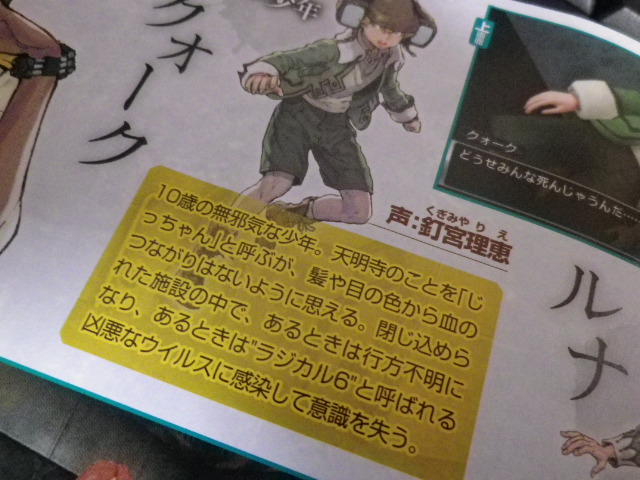 少年
クォーク
上
クォーク
どうせみんな死んじゃうんだ…
10歳の無邪気な少年。天明寺のことを「じ
っちゃん」と呼ぶが、髪や目の色から血の
つながりはないように思える。閉じ込めら
れた施設の中で、あるときは行方不明に
なり、あるときは"ラジカル6"と呼ばれる
凶悪なウイルスに感染して意識を失う。
くぎみや りえ
声:釘宮理恵
ルナ